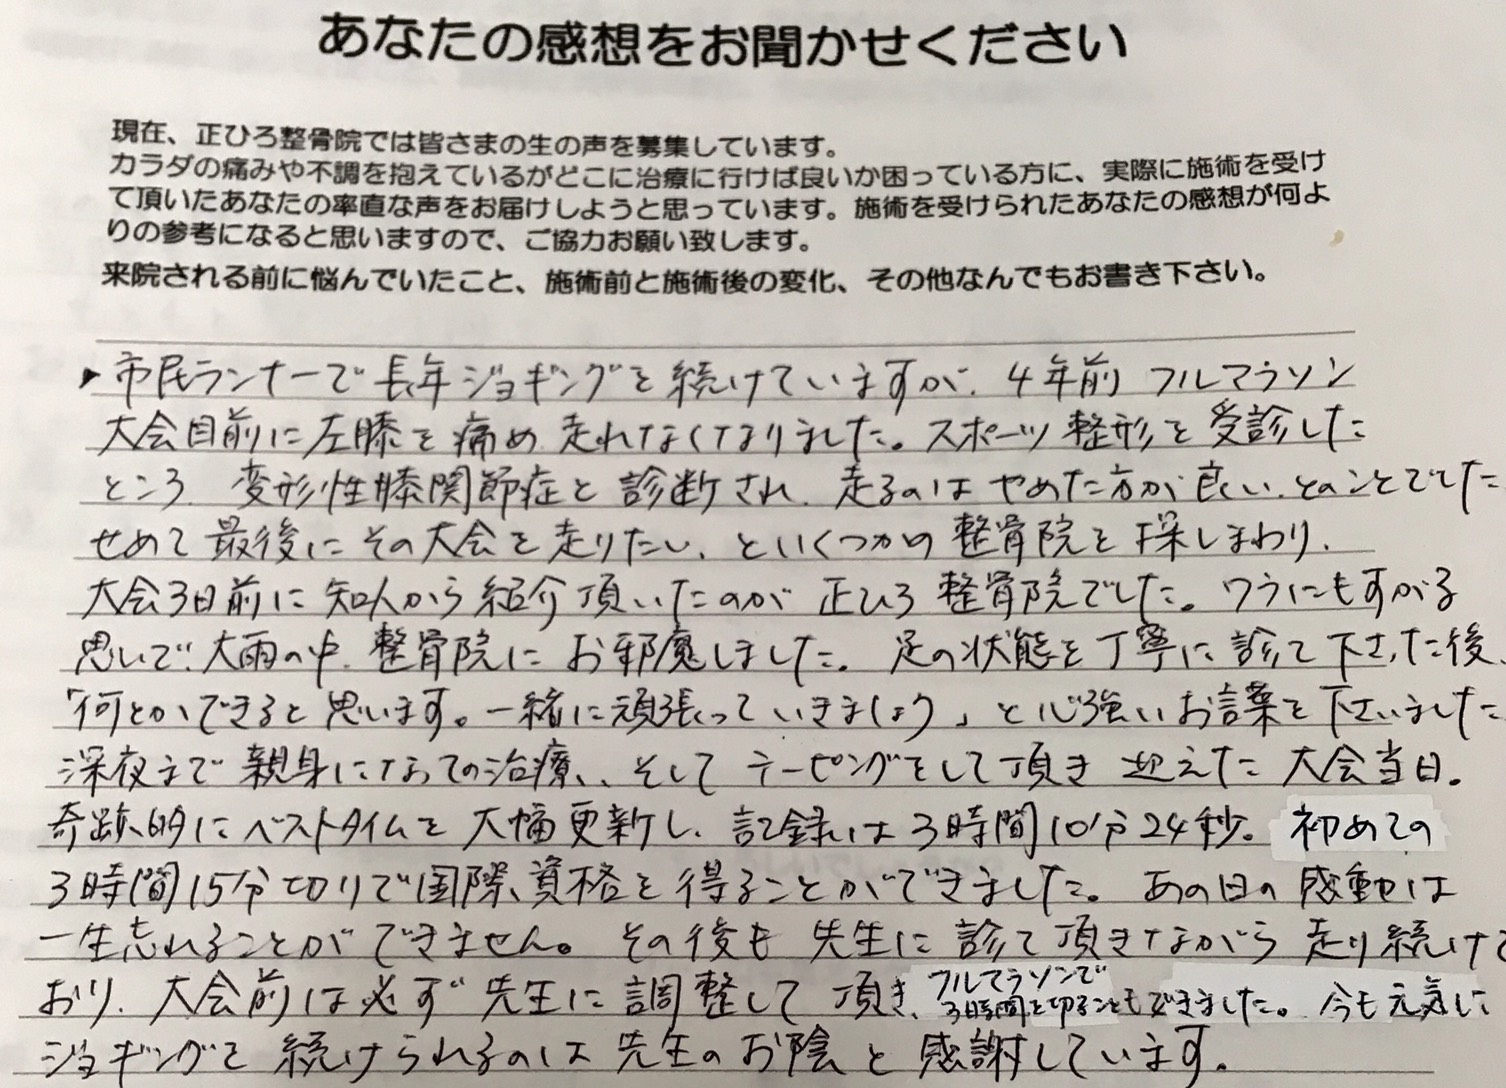 あなたの感想をお聞かせください
現在、正ひろ整骨院では皆さまの生の声を募集しています。
カラダの痛みや不調を抱えているがどこに治療に行けば良いか困っている方に、実際に施術を受け
て頂いたあなたの率直な声をお届けしようと思っています。施術を受けられたあなたの感想が何よ
りの参考になると思いますので、ご協力お願い致します。
来院される前に悩んでいたこと、施術前と施術後の変化、その他なんでもお書き下さい。
市民ランナーで長年ジョギングを続けていますが、4年前フルマラソン
大会目前に左膝を痛め走れなくなりました。スポーツ整形を受診した
ところ、変形性膝関節症と診断され、走るのはやめた方が良い、とのことでした
せめて最後にその大会を走りたい、といくつかの整骨院を探しまわり、
大会3日前に知人から紹介頂いたのが正ひろ整骨院でした。ワラにもすがる
思いで、大雨の中、整骨院にお邪魔しました。足の状態を丁寧に診て下さった後、
「何とかできると思います。一緒に頑張っていきましょう」と心強いお言葉を下さいました
深夜まで親身になっての治療、そしてテーピングをして頂き迎えた大会当日。
奇跡的にベストタイムを大幅更新し、記録は3時間10分24秒。初めての
3時間15分切りで国際資格を得ることができました。あの日の感動は
一生忘れることができません。その後も先生に診て頂きながら走り続けて
おり、大会前は必ず先生に調整して頂き、フルマラソンで
3時間を切ることもできました。今も元気に
ジョギングを続けられるのは先生のお陰と感謝しています。